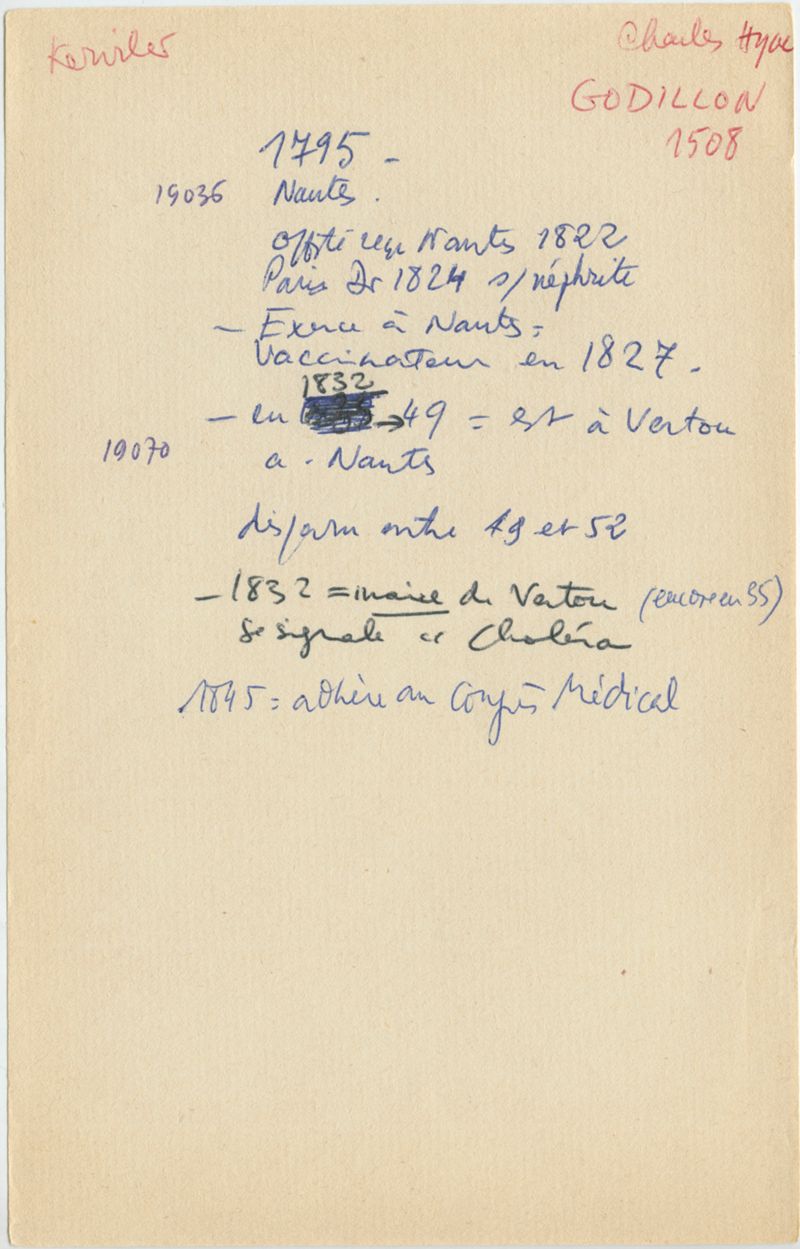 Kerviler
Charles Hya
GODILLON
1508
1795 -
19036 Nantes.
offté reçu Nantes 1822
Paris Dr 1824 s/néphrite
- Exerce à Nantes =
Vaccinateur en 1827.
1832
- en → 49 = est à Vertou
19070 a. Nantes
disparu entre 49 et 52
- 1832 = maire de Vertou (encore en 35)
se signale cc Choléra
1845 = adhère au Congrès Médical